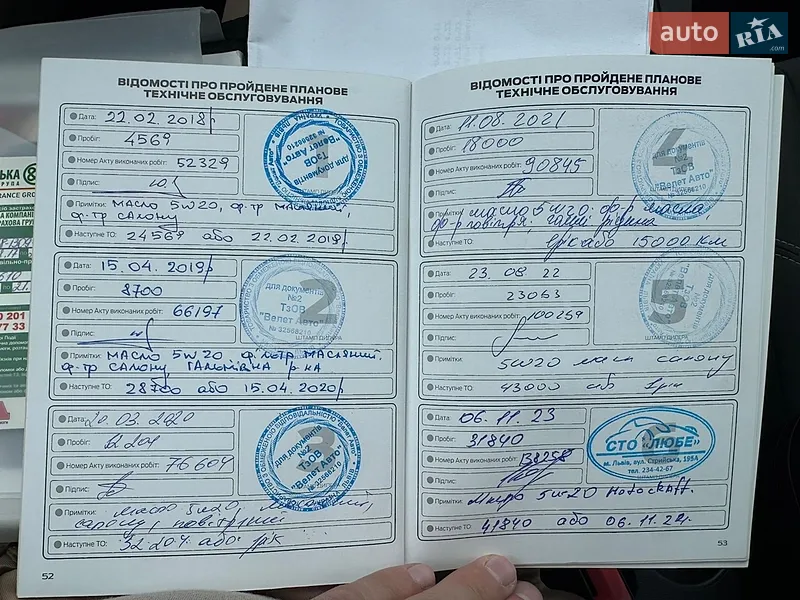 auto RIA.com
ВІДОМОСТІ ПРО ПРОЙДЕНЕ ПЛАНОВЕ
ТЕХНІЧНЕ ОБСЛУГОВУВАННЯ
Дата: 22.02.2018р
Пробіг: 4569
Номер Акту виконаних робіт: 52329
Підпис:
ШТАМП ДИЛЕРА
для документів
№2
ТзОВ
"Велет Авто"
№ 32568210
Примітки: МАСЛО 5W20, ф-тр МАСЛЯНИЙ,
ф-тр САЛОНУ
Наступне ТО: 24569 або 22.02.2019р
Дата: 15.04.2019р
Пробіг: 8700
Номер Акту виконаних робіт: 66197
Підпис:
2
ШТАМП ДИЛЕРА
для документів
№2
ТзОВ
"Велет Авто"
№ 32568210
Примітки: МАСЛО 5W20 ф-льтр МАСЛЯНИЙ.
ф-тр САЛОНУ ГАЛЬМІВНА р-НА
Наступне ТО: 28700 або 15.04.2020р
Дата: 20.03.2020
Пробіг: 12204
Номер Акту виконаних робіт: 76604
Підпис:
3
для документів
№2
ТзОВ
"Велет Авто"
Примітки: масло 5w20,
салону, повітряний
Наступне ТО: 32204 або 1рік
52
ВІДОМОСТІ ПРО ПРОЙДЕНЕ ПЛАНОВЕ
ТЕХНІЧНЕ ОБСЛУГОВУВАННЯ
Дата: 11.08.2021
Пробіг: 18000
Номер Акту виконаних робіт: 90845
Підпис:
4
ШТАМП ДИЛЕРА
для документів
№2
ТзОВ
"Велет Авто"
№ 32568210
Примітки: масло 5W20. ф-р масла,
ф-р повітря. гальм рідина
Наступне ТО: 1рік або 15000 км
Дата: 23.08.22
Пробіг: 23063
Номер Акту виконаних робіт: 100259
Підпис:
5
ШТАМП ДИЛЕРА
Примітки: 5W20 масл салону
Наступне ТО: 43000 або 1рік
Дата: 06.11.23
Пробіг: 31840
Номер Акту виконаних робіт: 138258
Підпис:
СТО "ЛЮБЕ"
м. Львів, вул. Стрийська, 195А
тел. 234-42-67
Примітки: 5W20 Motocraft.
Наступне ТО: 41840 або 06.11.24.
53